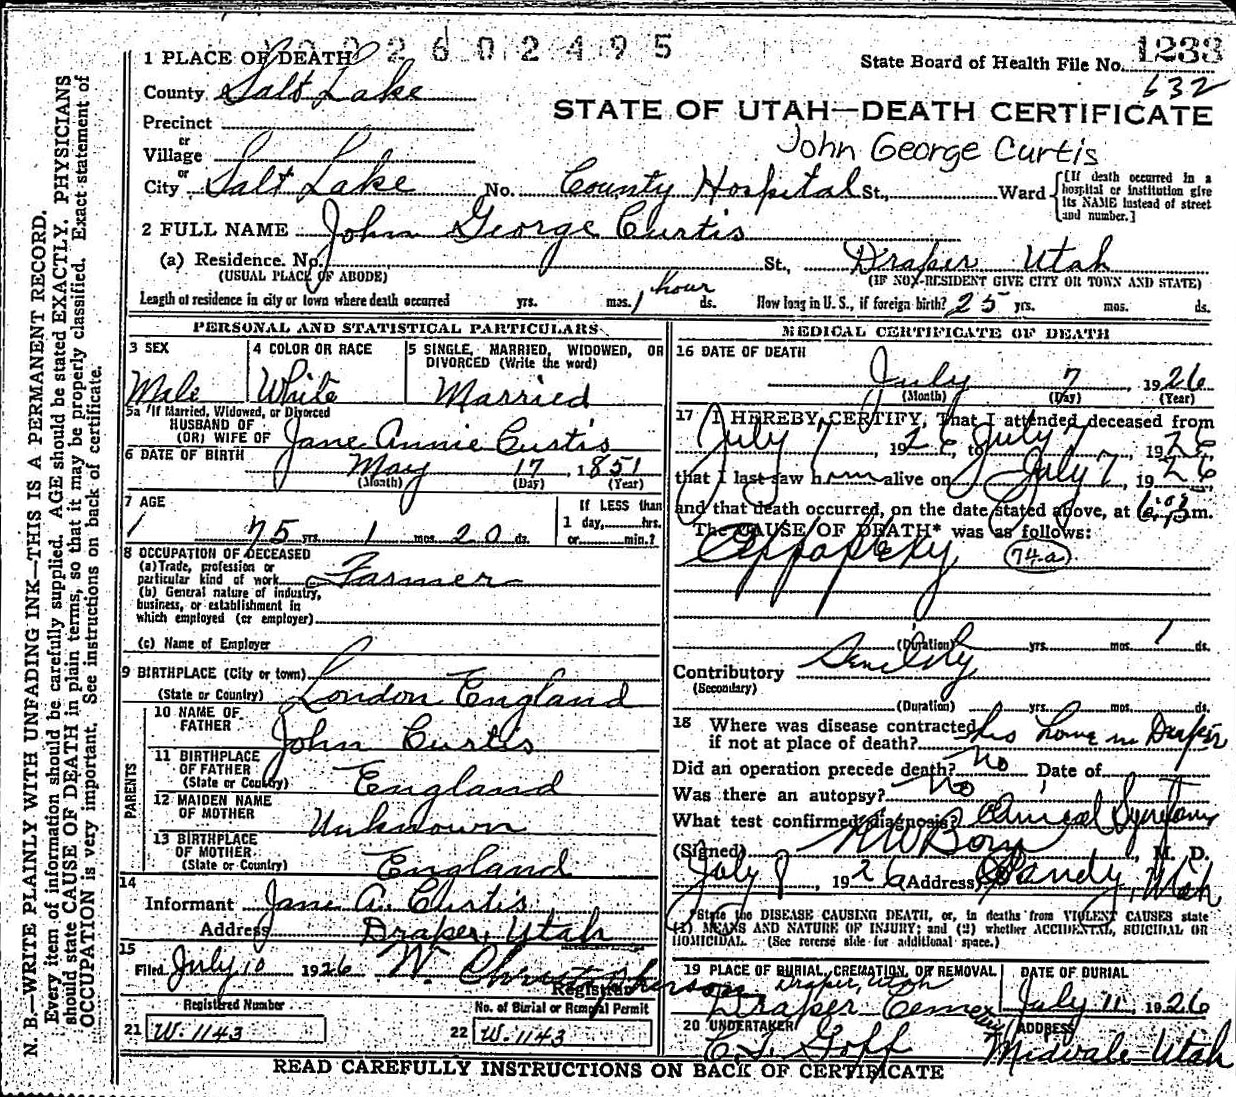 N. B.—WRITE PLAINLY WITH UNFADING INK—THIS IS A PERMANENT RECORD.
Every item of information should be carefully supplied. AGE should be stated EXACTLY. PHYSICIANS
should state CAUSE OF DEATH in plain terms, so that it may be properly classified. Exact statement of
OCCUPATION is very important. See instructions on back of certificate.
2602495
1 PLACE OF DEATH
State Board of Health File No. 1233
632
County Salt Lake
STATE OF UTAH—DEATH CERTIFICATE
Precinct
John George Curtis
or
Village
or
City Salt Lake No. County Hospital St., Ward
[If death occurred in a
hospital or institution give
its NAME instead of street
and number.]
2 FULL NAME John George Curtis
(a) Residence. No. St., Draper Utah
(USUAL PLACE OF ABODE) (IF NON-RESIDENT GIVE CITY OR TOWN AND STATE)
Length of residence in city or town where death occurred yrs. mos. 1 hour ds. How long in U. S., if foreign birth? 25 yrs. mos. ds.
PERSONAL AND STATISTICAL PARTICULARS
3 SEX
Male
4 COLOR OR RACE
White
5 SINGLE, MARRIED, WIDOWED, OR
DIVORCED (Write the word)
Married
5a If Married, Widowed, or Divorced
HUSBAND OF
(OR) WIFE OF Jane Annie Curtis
6 DATE OF BIRTH May 17, 1851
(Month) (Day) (Year)
7 AGE
75 yrs. 1 mos. 20 ds.
If LESS than
1 day, hrs.
or min.?
8 OCCUPATION OF DECEASED
(a) Trade, profession or
particular kind of work Farmer
(b) General nature of industry,
business, or establishment in
which employed (or employer)
(c) Name of Employer
9 BIRTHPLACE (City or town)
(State or Country) London England
PARENTS
10 NAME OF
FATHER John Curtis
11 BIRTHPLACE
OF FATHER
(State or Country) England
12 MAIDEN NAME
OF MOTHER Unknown
13 BIRTHPLACE
OF MOTHER
(State or Country) England
14
Informant Jane A. Curtis
Address Draper, Utah
15
Filed July 10 1926 W. Christopherson
Registrar
Registered Number
21 W. 1143
No. of Burial or Removal Permit
22 W. 1143
MEDICAL CERTIFICATE OF DEATH
16 DATE OF DEATH
July 7, 1926
(Month) (Day) (Year)
17 I HEREBY CERTIFY, That I attended deceased from
July 7, 1926, to July 7, 1926,
that I last saw him alive on July 7, 1926
and that death occurred, on the date stated above, at m.
The CAUSE OF DEATH* was as follows:
Appoplexy 74-a
(Duration) yrs. mos. 1 ds.
Contributory Senility
(Secondary)
(Duration) yrs. mos. ds.
18 Where was disease contracted
if not at place of death? his home in Draper
Did an operation precede death? No Date of
Was there an autopsy? No
What test confirmed diagnosis? Clinical Symptoms
(Signed) M. D.
July 8, 1926 (Address) Sandy, Utah
*State the DISEASE CAUSING DEATH, or, in deaths from VIOLENT CAUSES state
(1) MEANS AND NATURE OF INJURY; and (2) whether ACCIDENTAL, SUICIDAL OR
HOMICIDAL. (See reverse side for additional space.)
19 PLACE OF BURIAL, CREMATION, OR REMOVAL
Draper, Utah
Draper Cemetery
DATE OF BURIAL
July 11, 1926
20 UNDERTAKER
Goff
ADDRESS
Midvale-Utah
READ CAREFULLY INSTRUCTIONS ON BACK OF CERTIFICATE